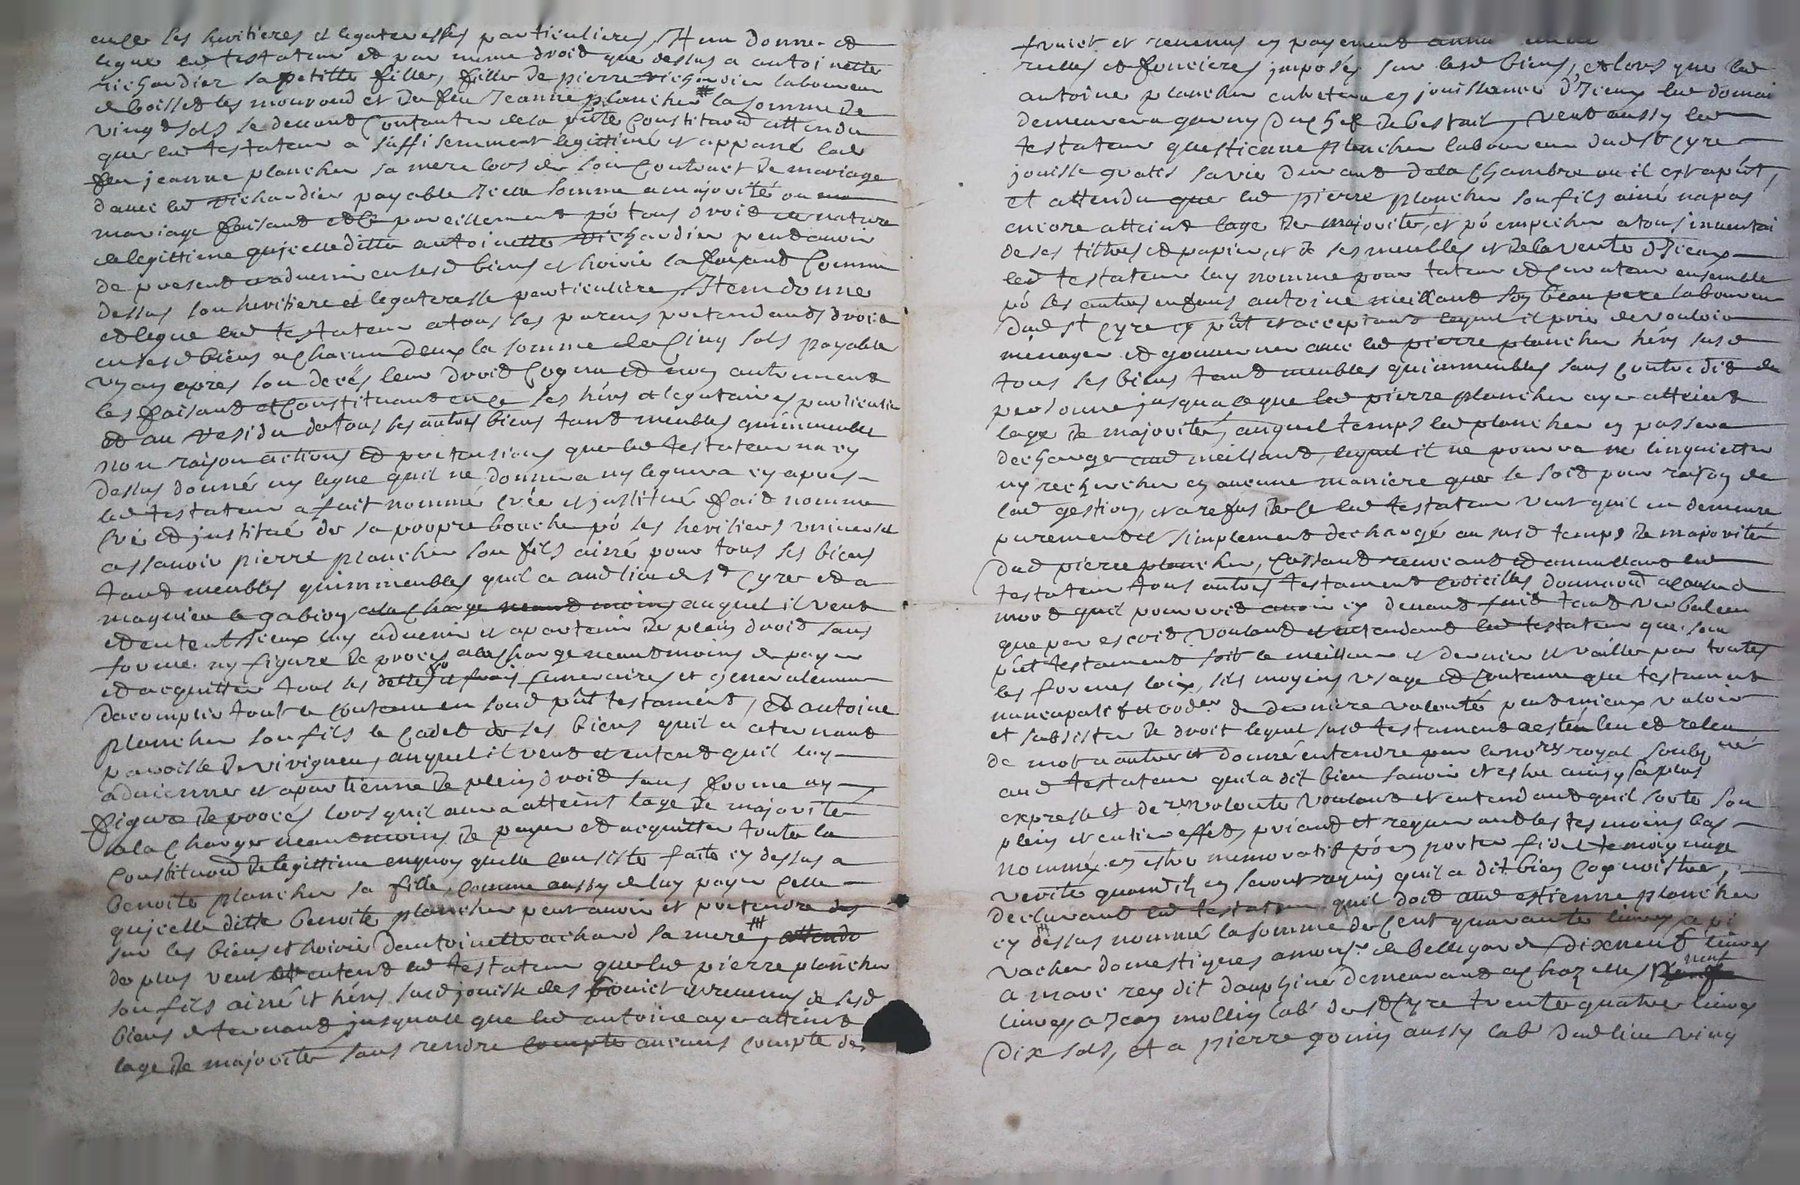 en ce ses heritieres et legateresses particulieres, Item donne et
legue led testateur et par mesme droid que dessus a antoinette
richardier sa petitte fille, fille de pierre richardier laboureur
de boisset les mourond et de feu Jeanne plancher # la somme de
vingt sols se devant contenter de la pnte constituon attendu
que led testateur a suffisemment legittimé et appané lad
feu jeanne plancher sa mere lors de son contract de mariage
avec led richardier payable icelle somme a majorité ou
mariage faisant pareillement po tous droid de nature
et legittime qu'icelle ditte antoinette richardier peut avoir
de present et advenir en sesd biens et hoirie la faisant comme
dessus son heritiere et legateresse particuliere, Item donne
et legue led testateur a tous ses parens pretendants droid
en sesd biens a chacun deux la somme de cinq sols payable
un an apres son decés leur droid cognu et non autrement
les faisant et constituant en ce ses hérs et legataires particuliers
et au residu de tous ses autres biens tant meubles qu'immeubles
nom raison actions et pretensions que led testateur na cy
dessus donné ny legué quil ne donnera ny leguera cy apres
led testateur a fait nommé créé et justitué fait nomme
cré et justitué de sa propre bouche po ses heritiers universel
assavoir pierre plancher son fils ainé pour tous ses biens
tant meubles qu'immeubles quil a aud lieu de St Cyre et a
magnieu le gabion a la charge neant moins auquel il veut
et entent iceux luy advenir et apartenir de plein droid sans
forme ny figure de proces a la charge neantmoins de payer
et acquitter tous ses dettes et frais funeraires et generalement
dacomplir tout le contenu en sond pnt testament, et antoine
plancher son fils le cadet de ses biens quil a
paroisse de virigneu, auquel il veut et entent quil luy
advienne et apartienne de plein droid sans forme ny
figure de proces lors quil aura atteint lage de majorité
a la charge neantmoins de payer et acquitter toute la
constituon de legittime en quoy quelle consiste faite cy dessus a
benoite plancher sa fille, comme aussy de luy payer celle
qu'icelle ditte benoite plancher peut avoir et pretendre
sur les biens et hoirie dantoinette achard sa mere #, attendu
de plus veut et entend led testateur que led pierre plancher
son fils ainé et hérs susd jouisse des fruict et revenus de sesd
biens de jusqua ce que led antoine aye atteint
lage de majorité sans rendre compte aucuns compte des
fruict et revenus en payement
reelles et foncieres imposés sur lesd biens, et lors que led
antoine plancher entrera en jouissance d'iceux led
demeurera garny du chef de bestail, veut aussy led
testateur questienne plancher laboureur dud St Cyre
jouisse gratis sa vie durant de la chambre ou il est apnt,
et attendu que led pierre plancher son fils ainé na pas
encore atteint lage de majorité, et po empecher a tous
de ses tiltres et papier, et de ses meubles et de la vente d'iceux
led testateur luy nomme pour tuteur et curateur ensemble
po ses autres enfans antoine meilland son beau pere laboureur
dud St Cyre cy pnt et acceptant lequel il prie de vouloir
ménager et gouverner avec led pierre plancher hérs susd
tous ses biens tant meubles qu'immeubles sans contredit de
personne jusqua ce que led pierre plancher aye atteint
lage de majorité, auquel temps led plancher en passera
decharge aud meilland, lequel il ne pourra ne linquietter
ny rechercher en aucune maniere que ce soid pour raison de
lad gestion, et a refus de ce led testateur veut quil en demeure
purement et simplement dechargé au susd temps de majorité
dud pierre plancher, cassant revocant et annullant led
testateur tous autres testament codicilles donnaon a cause de
mort quil pourroid avoir cy devant faid tant verbalem
que par escrid voulant et entendant led testateur que son
pnt testament soit le meilleur et dernier et vaille par toutes
les formes loix, us moyens usage et coutume que testament
nuncupatif et ordre de derniere volonté peut mieux valoir
et subsister de droit lequel susd testament a esté leu et releu
de mot a autre et donné entendre par le nore royal soubzné
aud testateur quil a dit bien sauoir et estre ainsy sa plus
expresse et dere volonte voulant et entendant quil sorte son
plein et entier effet, priant et requerant les tesmoins bas
nommé en estre memoratif po en porter fidel temoignage
verité quand ils en seront requis quil a dit bien cognoistre,
declarant led testateur quil doid aud estienne plancher
cy dessus nommé la somme de cent quarante livres, a
vacher domestiques a de bellegarde dixneuf livres
a marc rey dit dauphiné demeurant a chazelles neuf
livres, a Jean mollin labr de St Cyre trente quatre livres
dix sols, et a pierre gonin aussy labr dud lieu ving